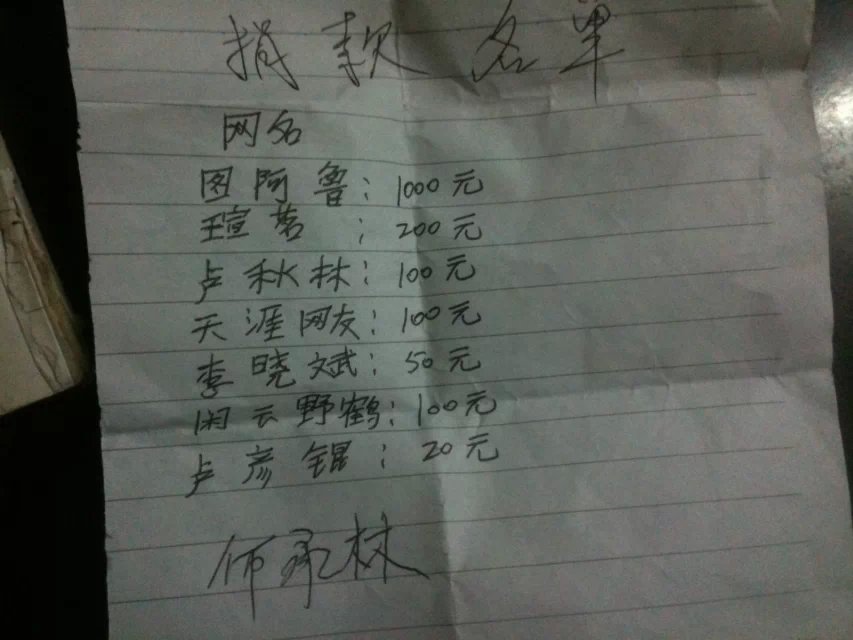 捐款名单
网名
图阿鲁：1000元
瑄茗：200元
卢秋林：100元
天涯网友：100元
李晓斌：50元
闲云野鹤：100元
卢彦锟：20元
林